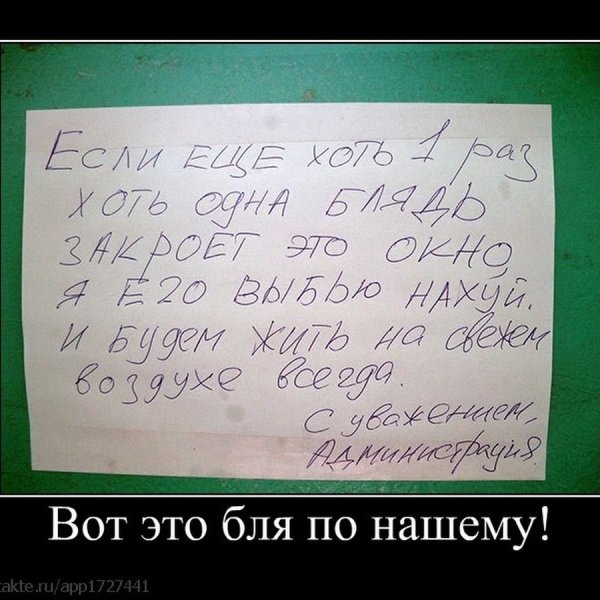 Если ЕЩЕ хоть 1 раз
хоть одна БЛЯДЬ
ЗАКРОЕТ это ОКНО
Я ЕГО ВЫБЬЮ НАХУЙ.
И будем ЖИТЬ на свежем
воздухе всегда.
С уважением,
Администрация.
Вот это бля по нашему!
takte.ru/app1727441